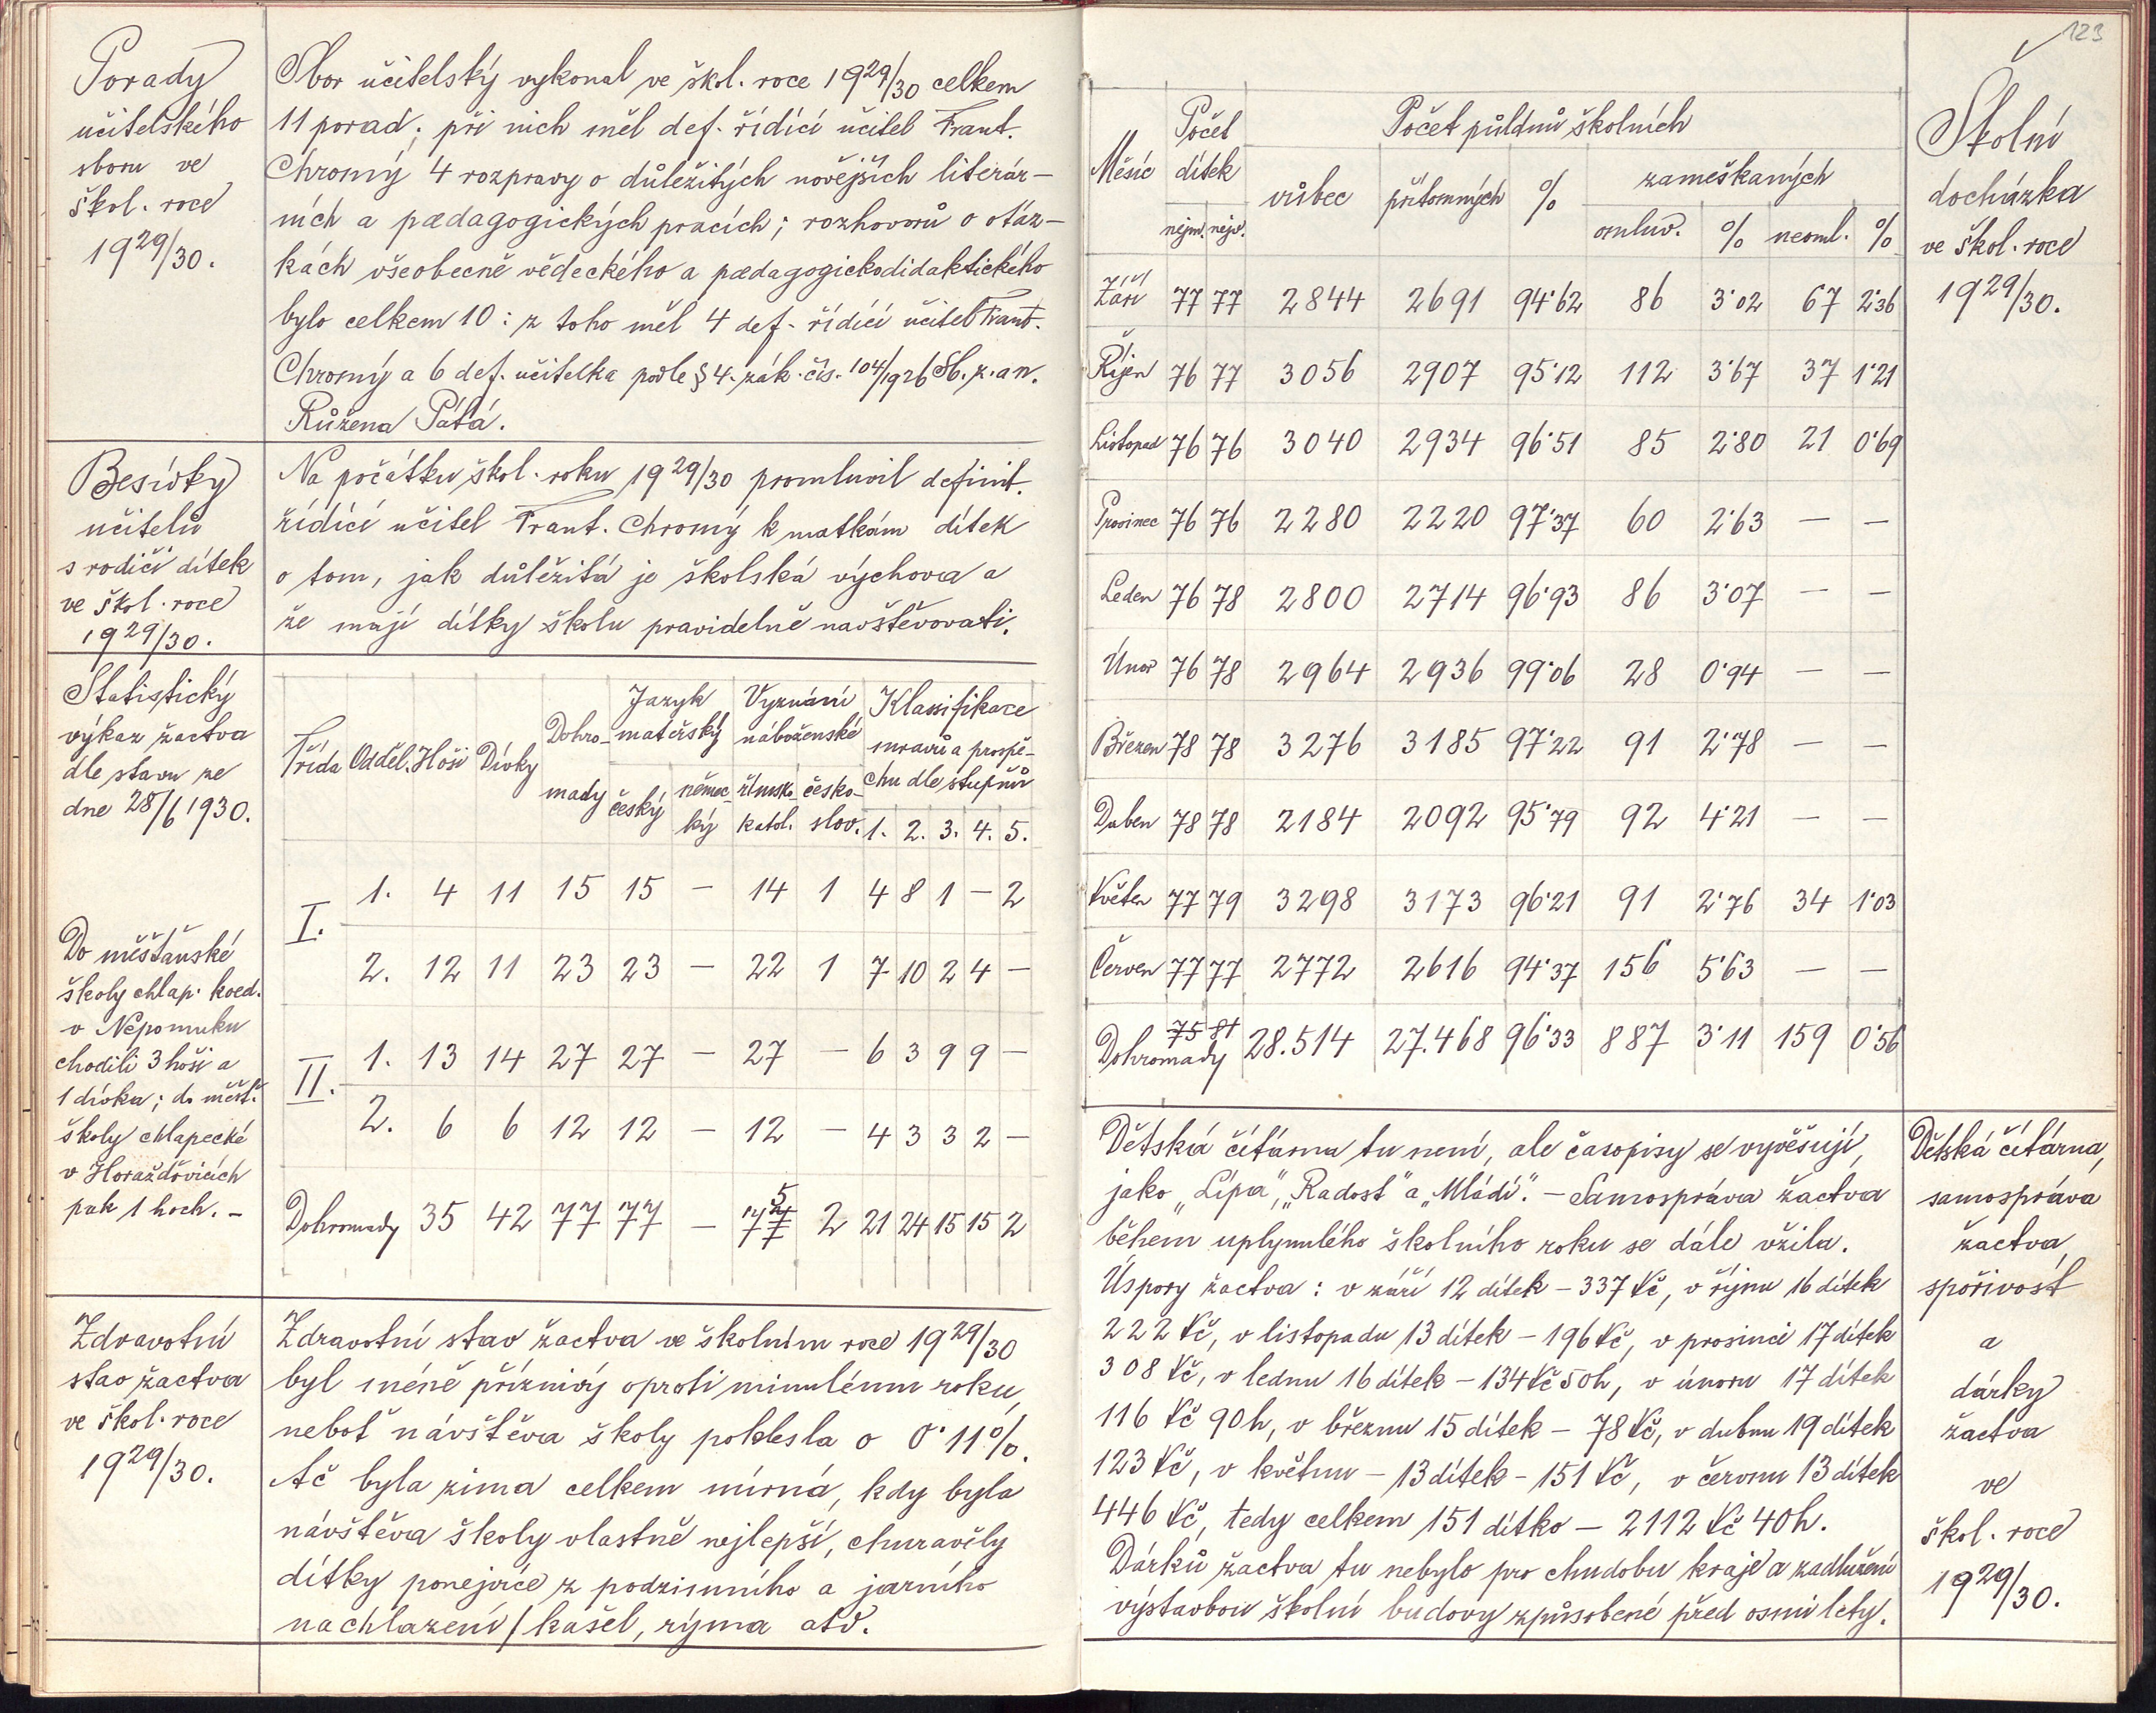 Porady
učitelského
sboru ve
škol. roce
1929/30.
Sbor učitelský vykonal ve škol. roce 1929/30 celkem
11 porad; při nich měl def. řídící učitel Frant.
Chromý 4 rozpravy o důležitých novějších literár-
ních a pædagogických pracích; rozhovorů o otáz-
kách všeobecně vědeckého a pædagogickodidaktického
bylo celkem 10: z toho měl 4 def. řídící učitel Frant.
Chromý a 6 def. učitelka podle § 4. zák. čís. 104/1926 Sb. z. a n.
Růžena Pátá.
Besídky
učitelů
s rodiči dítek
ve škol. roce
1929/30.
Na počátku škol. roku 1929/30 promluvil definit.
řídící učitel Frant. Chromý k matkám dítek
o tom, jak důležitá je školská výchova a
že mají dítky školu pravidelně navštěvovati.
Statistický
výkaz žactva
dle stavu ze
dne 28/6 1930.
Do měšťanské
školy chlap. koed.
v Nepomuku
chodili 3 hoši a
1 dívka; do měšť.
školy chlapecké
v Horažďovicích
pak 1 hoch. –
Třída Odděl. Hoši Dívky Dohro-mady Jazyk mateřský Vyznání náboženské Klassifikace mravů a prospě-chu dle stupňů
český němec-ký římsko-katol. česko-slov. 1. 2. 3. 4. 5.
I. 1. 4 11 15 15 – 14 1 4 8 1 – 2
2. 12 11 23 23 – 22 1 7 10 2 4 –
II. 1. 13 14 27 27 – 27 – 6 3 9 9 –
2. 6 6 12 12 – 12 – 4 3 3 2 –
Dohromady 35 42 77 77 – 75 2 21 24 15 15 2
Zdravotní
stav žactva
ve škol. roce
1929/30.
Zdravotní stav žactva ve školním roce 1929/30
byl méně příznivý oproti minulému roku,
neboť návštěva školy poklesla o 0·11%.
Ač byla zima celkem mírná, kdy byla
návštěva školy vlastně nejlepší, churavěly
dítky ponejvíce z podzimního a jarního
nachlazení / kašel, rýma atd.
123
Školní
docházka
ve škol. roce
1929/30.
Měsíc Počet dítek Počet půldnů školních
nejm. nejv. vůbec přítomných % zameškaných
omluv. % neoml. %
Září 77 77 2844 2691 94·62 86 3·02 67 2·36
Říjen 76 77 3056 2907 95·12 112 3·67 37 1·21
Listopad 76 76 3040 2934 96·51 85 2·80 21 0·69
Prosinec 76 76 2280 2220 97·37 60 2·63 – –
Leden 76 78 2800 2714 96·93 86 3·07 – –
Únor 76 78 2964 2936 99·06 28 0·94 – –
Březen 78 78 3276 3185 97·22 91 2·78 – –
Duben 78 78 2184 2092 95·79 92 4·21 – –
Květen 77 79 3298 3173 96·21 91 2·76 34 1·03
Červen 77 77 2772 2616 94·37 156 5·63 – –
Dohromady 75 81 28.514 27.468 96·33 887 3·11 159 0·56
Dětská čítárna tu není, ale časopisy se vyvěšují,
jako „Lípa", „Radost" a „Mládí". – Samospráva žactva
během uplynulého školního roku se dále vžila.
Úspory žactva: v září 12 dítek – 337 Kč, v říjnu 16 dítek
222 Kč, v listopadu 13 dítek – 196 Kč, v prosinci 17 dítek
308 Kč, v lednu 16 dítek – 134 Kč 50 h, v únoru 17 dítek
116 Kč 90 h, v březnu 15 dítek – 78 Kč, v dubnu 19 dítek
123 Kč, v květnu – 13 dítek – 151 Kč, v červnu 13 dítek
446 Kč, tedy celkem 151 dítko – 2112 Kč 40 h.
Dárků žactva tu nebylo pro chudobu kraje a zadlužení
výstavbou školní budovy způsobené před osmi lety.
Dětská čítárna,
samospráva
žactva,
spořivost
a
dárky
žactva
ve
škol. roce
1929/30.